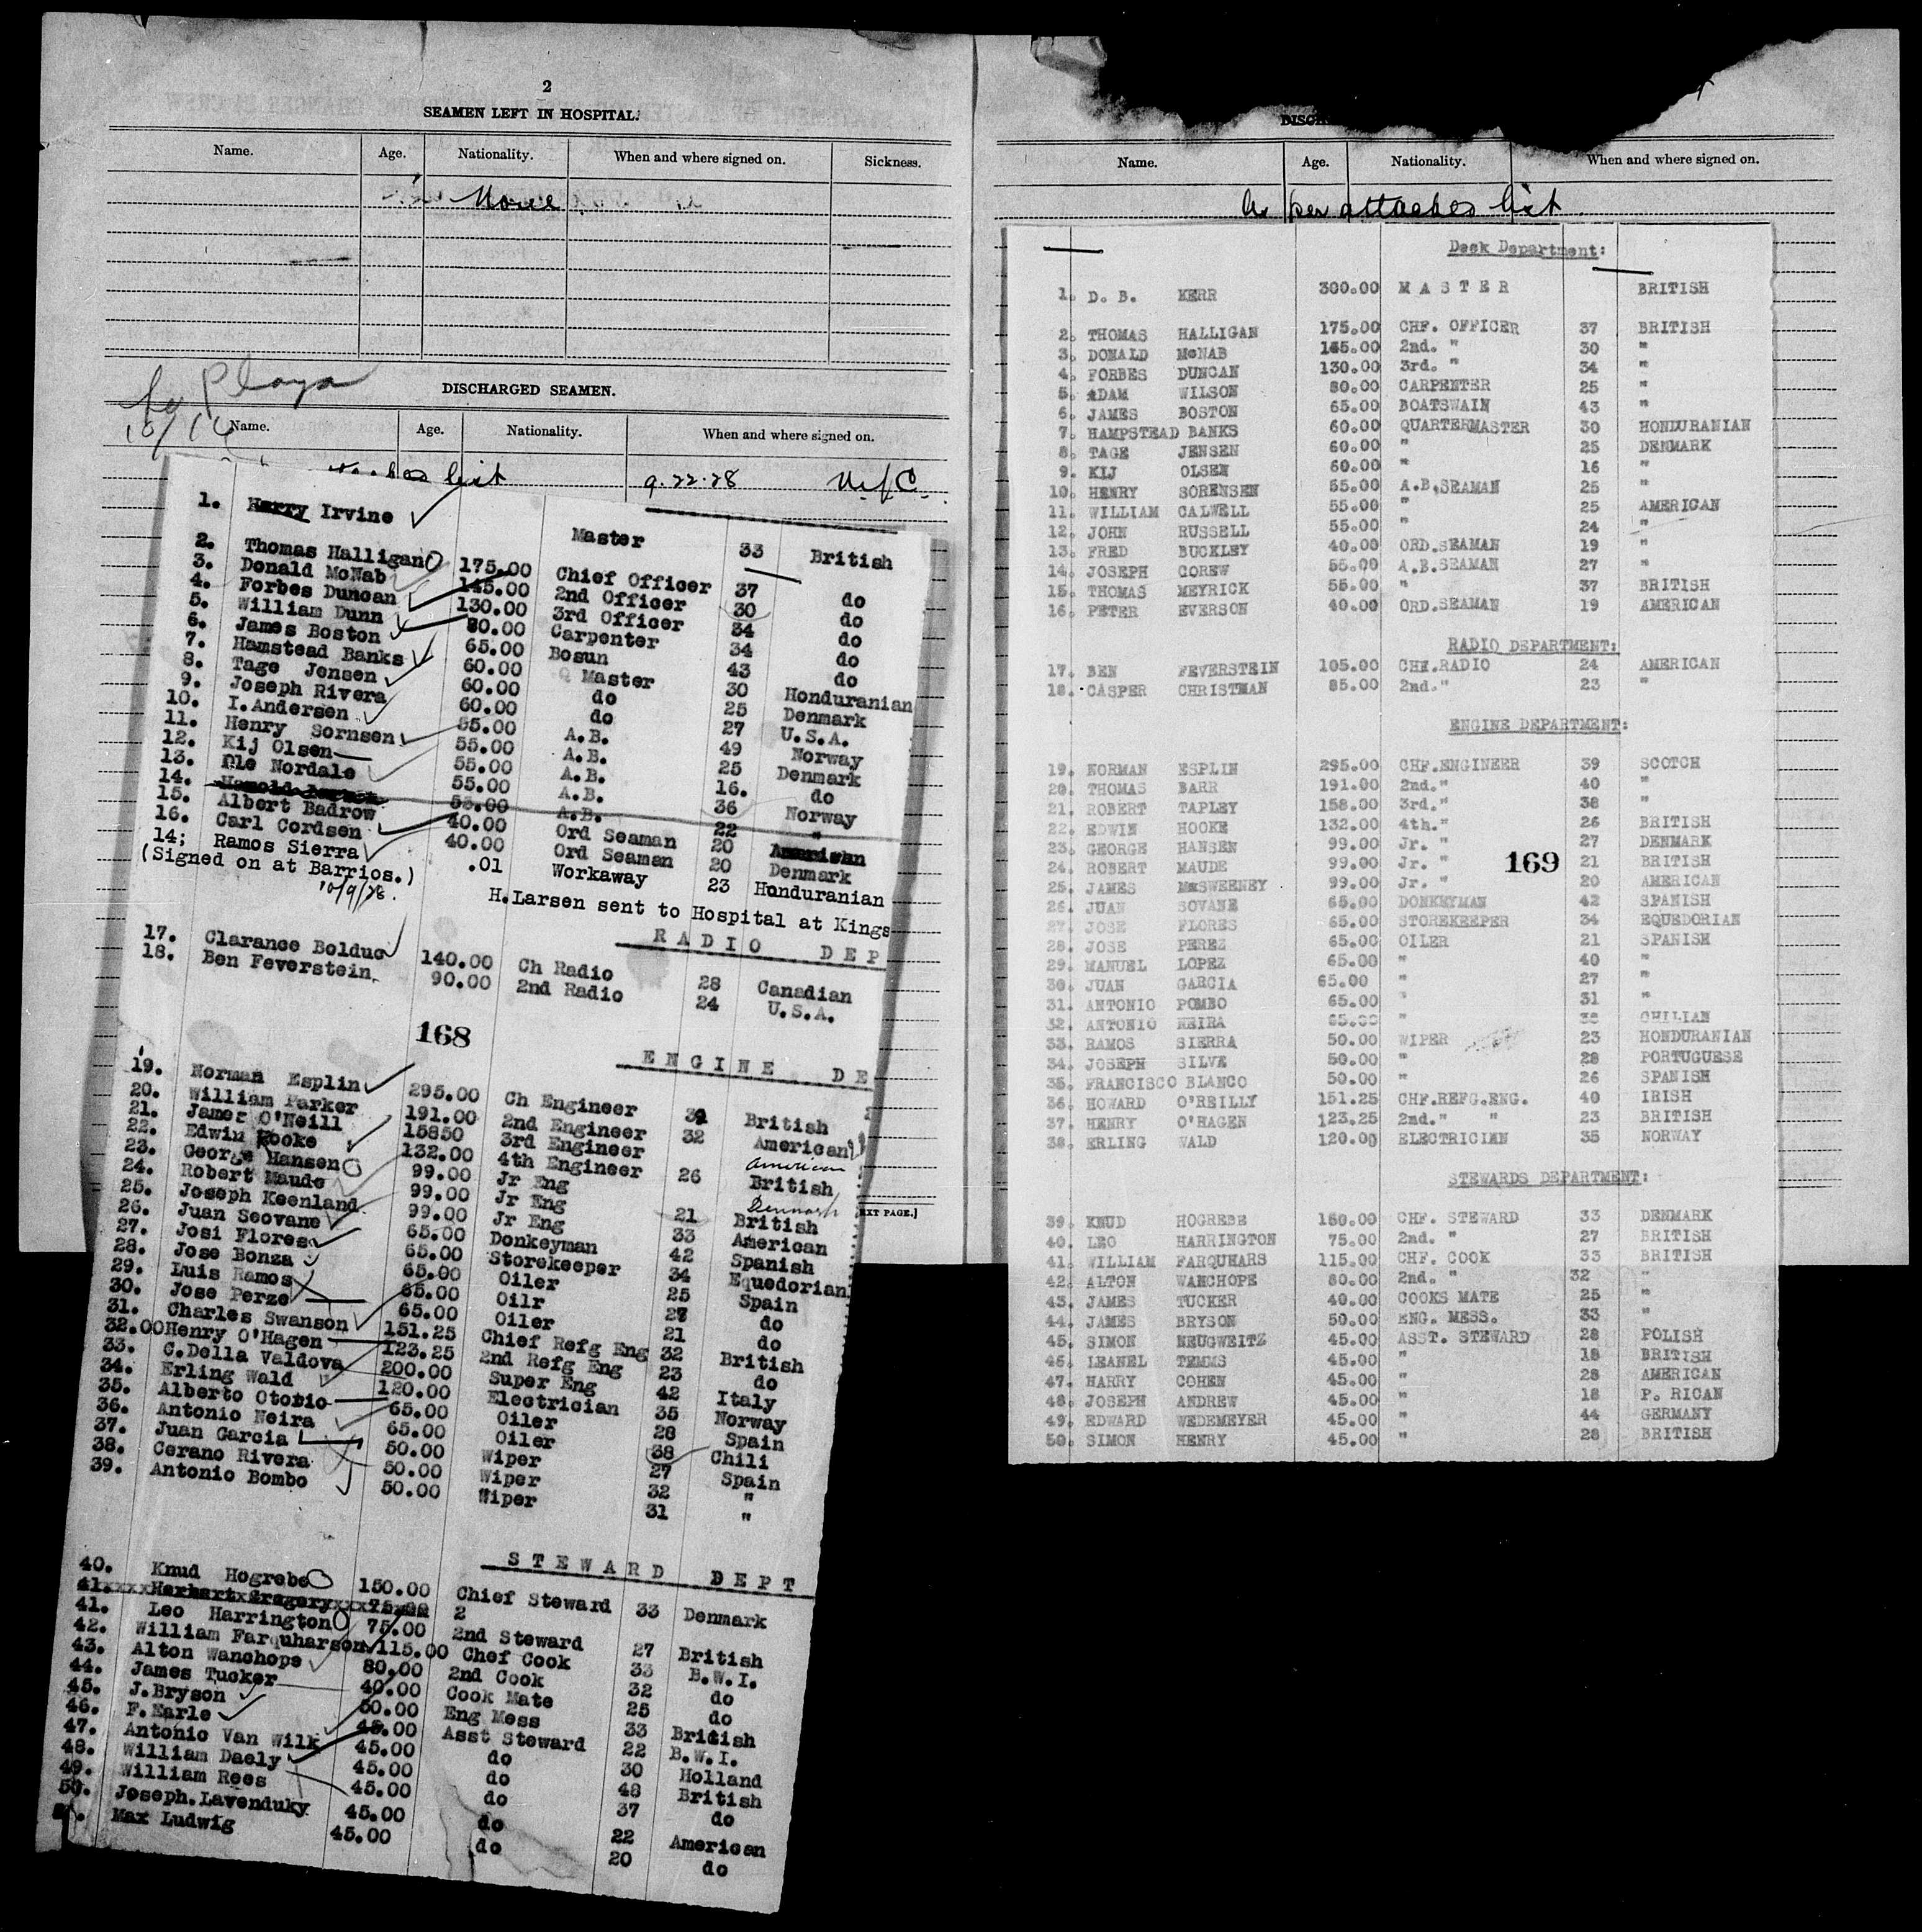 2
SEAMEN LEFT IN HOSPITAL.
Name. Age. Nationality. When and where signed on. Sickness.
None
La Playa
10/14
DISCHARGED SEAMEN.
Name. Age. Nationality. When and where signed on.
list 9.22.28 N.Y.C.
1. Harry Irvine Master 33 British
2. Thomas Halligan 175.00 Chief Officer 37 do
3. Donald McNab 145.00 2nd Officer 30 do
4. Forbes Duncan 130.00 3rd Officer 34 do
5. William Dunn 80.00 Carpenter 34 do
6. James Boston 65.00 Bosun 43 do
7. Hamstead Banks 60.00 Q Master 30 Honduranian
8. Tage Jensen 60.00 do 25 Denmark
9. Joseph Rivera 60.00 do 27 U.S.A.
10. I.Andersen 55.00 A.B. 49 Norway
11. Henry Sornsen 55.00 A.B. 25 Denmark
12. Kij Olsen 55.00 A.B. 16. do
13. Ole Nordale 55.00 A.B. 36 Norway
14. 55.00 A.B. 22 "
15. Albert Badrow 40.00 Ord Seaman 20 American
16. Carl Cordsen 40.00 Ord Seaman 20 Denmark
14; Ramos Sierra .01 Workaway 23 Honduranian
(Signed on at Barrios.)
10/9/28.
H.Larsen sent to Hospital at Kings
RADIO DEP
17. Clarance Bolduc 140.00 Ch Radio 28 Canadian
18. Ben Feverstein. 90.00 2nd Radio 24 U.S.A.
168
ENGINE DE
19. Norman Esplin 295.00 Ch Engineer 39 British
20. William Parker 191.00 2nd Engineer 32 American
21. James O'Neill 15850 3rd Engineer American
22. Edwin Hooke 132.00 4th Engineer 26 British
23. George Hansen 99.00 Jr Eng Denmark
24. Robert Maude 99.00 Jr Eng 21 British
25. Joseph Keenland 99.00 Jr Eng 33 American
26. Juan Seovane 65.00 Donkeyman 42 Spanish
27. Josi Flores 65.00 Storekeeper 34 Equedorian
28. Jose Bonza 65.00 Oiler 25 Spain
29. Luis Ramos 65.00 Oilr 27 do
30. Jose Perze 65.00 Oiler 21 do
31. Charles Swanson 151.25 Chief Refg Eng 32 British
32.00 Henry O'Hagen 123.25 2nd Refg Eng 23 do
33. C.Della Valdova 200.00 Super Eng 42 Italy
34. Erling Wald 120.00 Electrician 35 Norway
35. Alberto Otorio 65.00 Oiler 28 Spain
36. Antonio Neira 65.00 Oiler 38 Chili
37. Juan Garcia 50.00 Wiper 27 Spain
38. Cerano Rivera 50.00 Wiper 32 "
39. Antonio Bombo 50.00 Wiper 31 "
STEWARD DEPT
40. Knud Hogrebe 150.00 Chief Steward 33 Denmark
41. 75.00 2
41. Leo Harrington 75.00 2nd Steward 27 British
42. William Farquharson 115.00 Chef Cook 33 B.W.I.
43. Alton Wanchope 80.00 2nd Cook 32 do
44. James Tucker 40.00 Cook Mate 25 do
45. J.Bryson 50.00 Eng Mess 33 British
46. F.Earle 45.00 Asst Steward 22 B.W.I.
47. Antonio Van Wilk 45.00 do 30 Holland
48. William Daely 45.00 do 48 British
49. William Rees 45.00 do 37 do
50. Joseph.Lavenduky 45.00 do 22 American
Max Ludwig 45.00 do 20 do
EXT PAGE.]
DISCH
Name. Age. Nationality. When and where signed on.
As per attached list
Deck Department:
1. D. B. KERR 300.00 MASTER BRITISH
2. THOMAS HALLIGAN 175.00 CHF. OFFICER 37 BRITISH
3. DONALD McNAB 145.00 2nd. " 30 "
4. FORBES DUNCAN 130.00 3rd. " 34 "
5. ADAM WILSON 80.00 CARPENTER 25 "
6. JAMES BOSTON 65.00 BOATSWAIN 43 "
7. HAMPSTEAD BANKS 60.00 QUARTERMASTER 30 HONDURANIAN
8. TAGE JENSEN 60.00 " 25 DENMARK
9. KIJ OLSEN 60.00 " 16 "
10. HENRY SORENSEN 55.00 A.B.SEAMAN 25 "
11. WILLIAM CALWELL 55.00 " 25 AMERICAN
12. JOHN RUSSELL 55.00 " 24 "
13. FRED BUCKLEY 40.00 ORD.SEAMAN 19 "
14. JOSEPH COREW 55.00 A.B.SEAMAN 27 "
15. THOMAS MEYRICK 55.00 " 37 BRITISH
16. PETER EVERSON 40.00 ORD.SEAMAN 19 AMERICAN
RADIO DEPARTMENT:
17. BEN FEVERSTEIN 105.00 CHF.RADIO 24 AMERICAN
18. CASPER CHRISTMAN 85.00 2nd." 23 "
ENGINE DEPARTMENT:
19. NORMAN ESPLIN 295.00 CHF.ENGINEER 39 SCOTCH
20. THOMAS BARR 191.00 2nd." 40 "
21. ROBERT TAPLEY 158.00 3rd." 38 "
22. EDWIN HOOKE 132.00 4th." 26 BRITISH
23. GEORGE HANSEN 99.00 Jr. " 27 DENMARK
24. ROBERT MAUDE 99.00 Jr. " 21 BRITISH
169
25. JAMES McSWEENEY 99.00 Jr. " 20 AMERICAN
26. JUAN SOVANE 65.00 DONKEYMAN 42 SPANISH
27. JOSE FLORES 65.00 STOREKEEPER 34 EQUEDORIAN
28. JOSE PEREZ 65.00 OILER 21 SPANISH
29. MANUEL LOPEZ 65.00 " 40 "
30. JUAN GARCIA 65.00 " 27 "
31. ANTONIO POMBO 65.00 " 31 "
32. ANTONIO NEIRA 65.00 " 38 CHILIAN
33. RAMOS SIERRA 50.00 WIPER 23 HONDURANIAN
34. JOSEPH SILVE 50.00 " 28 PORTUGUESE
35. FRANCISCO BLANCO 50.00 " 26 SPANISH
36. HOWARD O'REILLY 151.25 CHF.REFG.ENG. 40 IRISH
37. HENRY O'HAGEN 123.25 2nd." " 23 BRITISH
38. ERLING WALD 120.00 ELECTRICIAN 35 NORWAY
STEWARDS DEPARTMENT:
39. KNUD HOGREBE 150.00 CHF. STEWARD 33 DENMARK
40. LEO HARRINGTON 75.00 2nd. " 27 BRITISH
41. WILLIAM FARQUHARS 115.00 CHF. COOK 33 BRITISH
42. ALTON WANCHOPE 80.00 2nd. " 32 "
43. JAMES TUCKER 40.00 COOKS MATE 25 "
44. JAMES BRYSON 50.00 ENG. MESS. 33 "
45. SIMON NEUGWEITZ 45.00 ASST. STEWARD 28 POLISH
46. LEANEL TEMMS 45.00 " 18 BRITISH
47. HARRY COHEN 45.00 " 28 AMERICAN
48. JOSEPH ANDREW 45.00 " 18 P. RICAN
49. EDWARD WEDEMEYER 45.00 " 44 GERMANY
50. SIMON HENRY 45.00 " 28 BRITISH